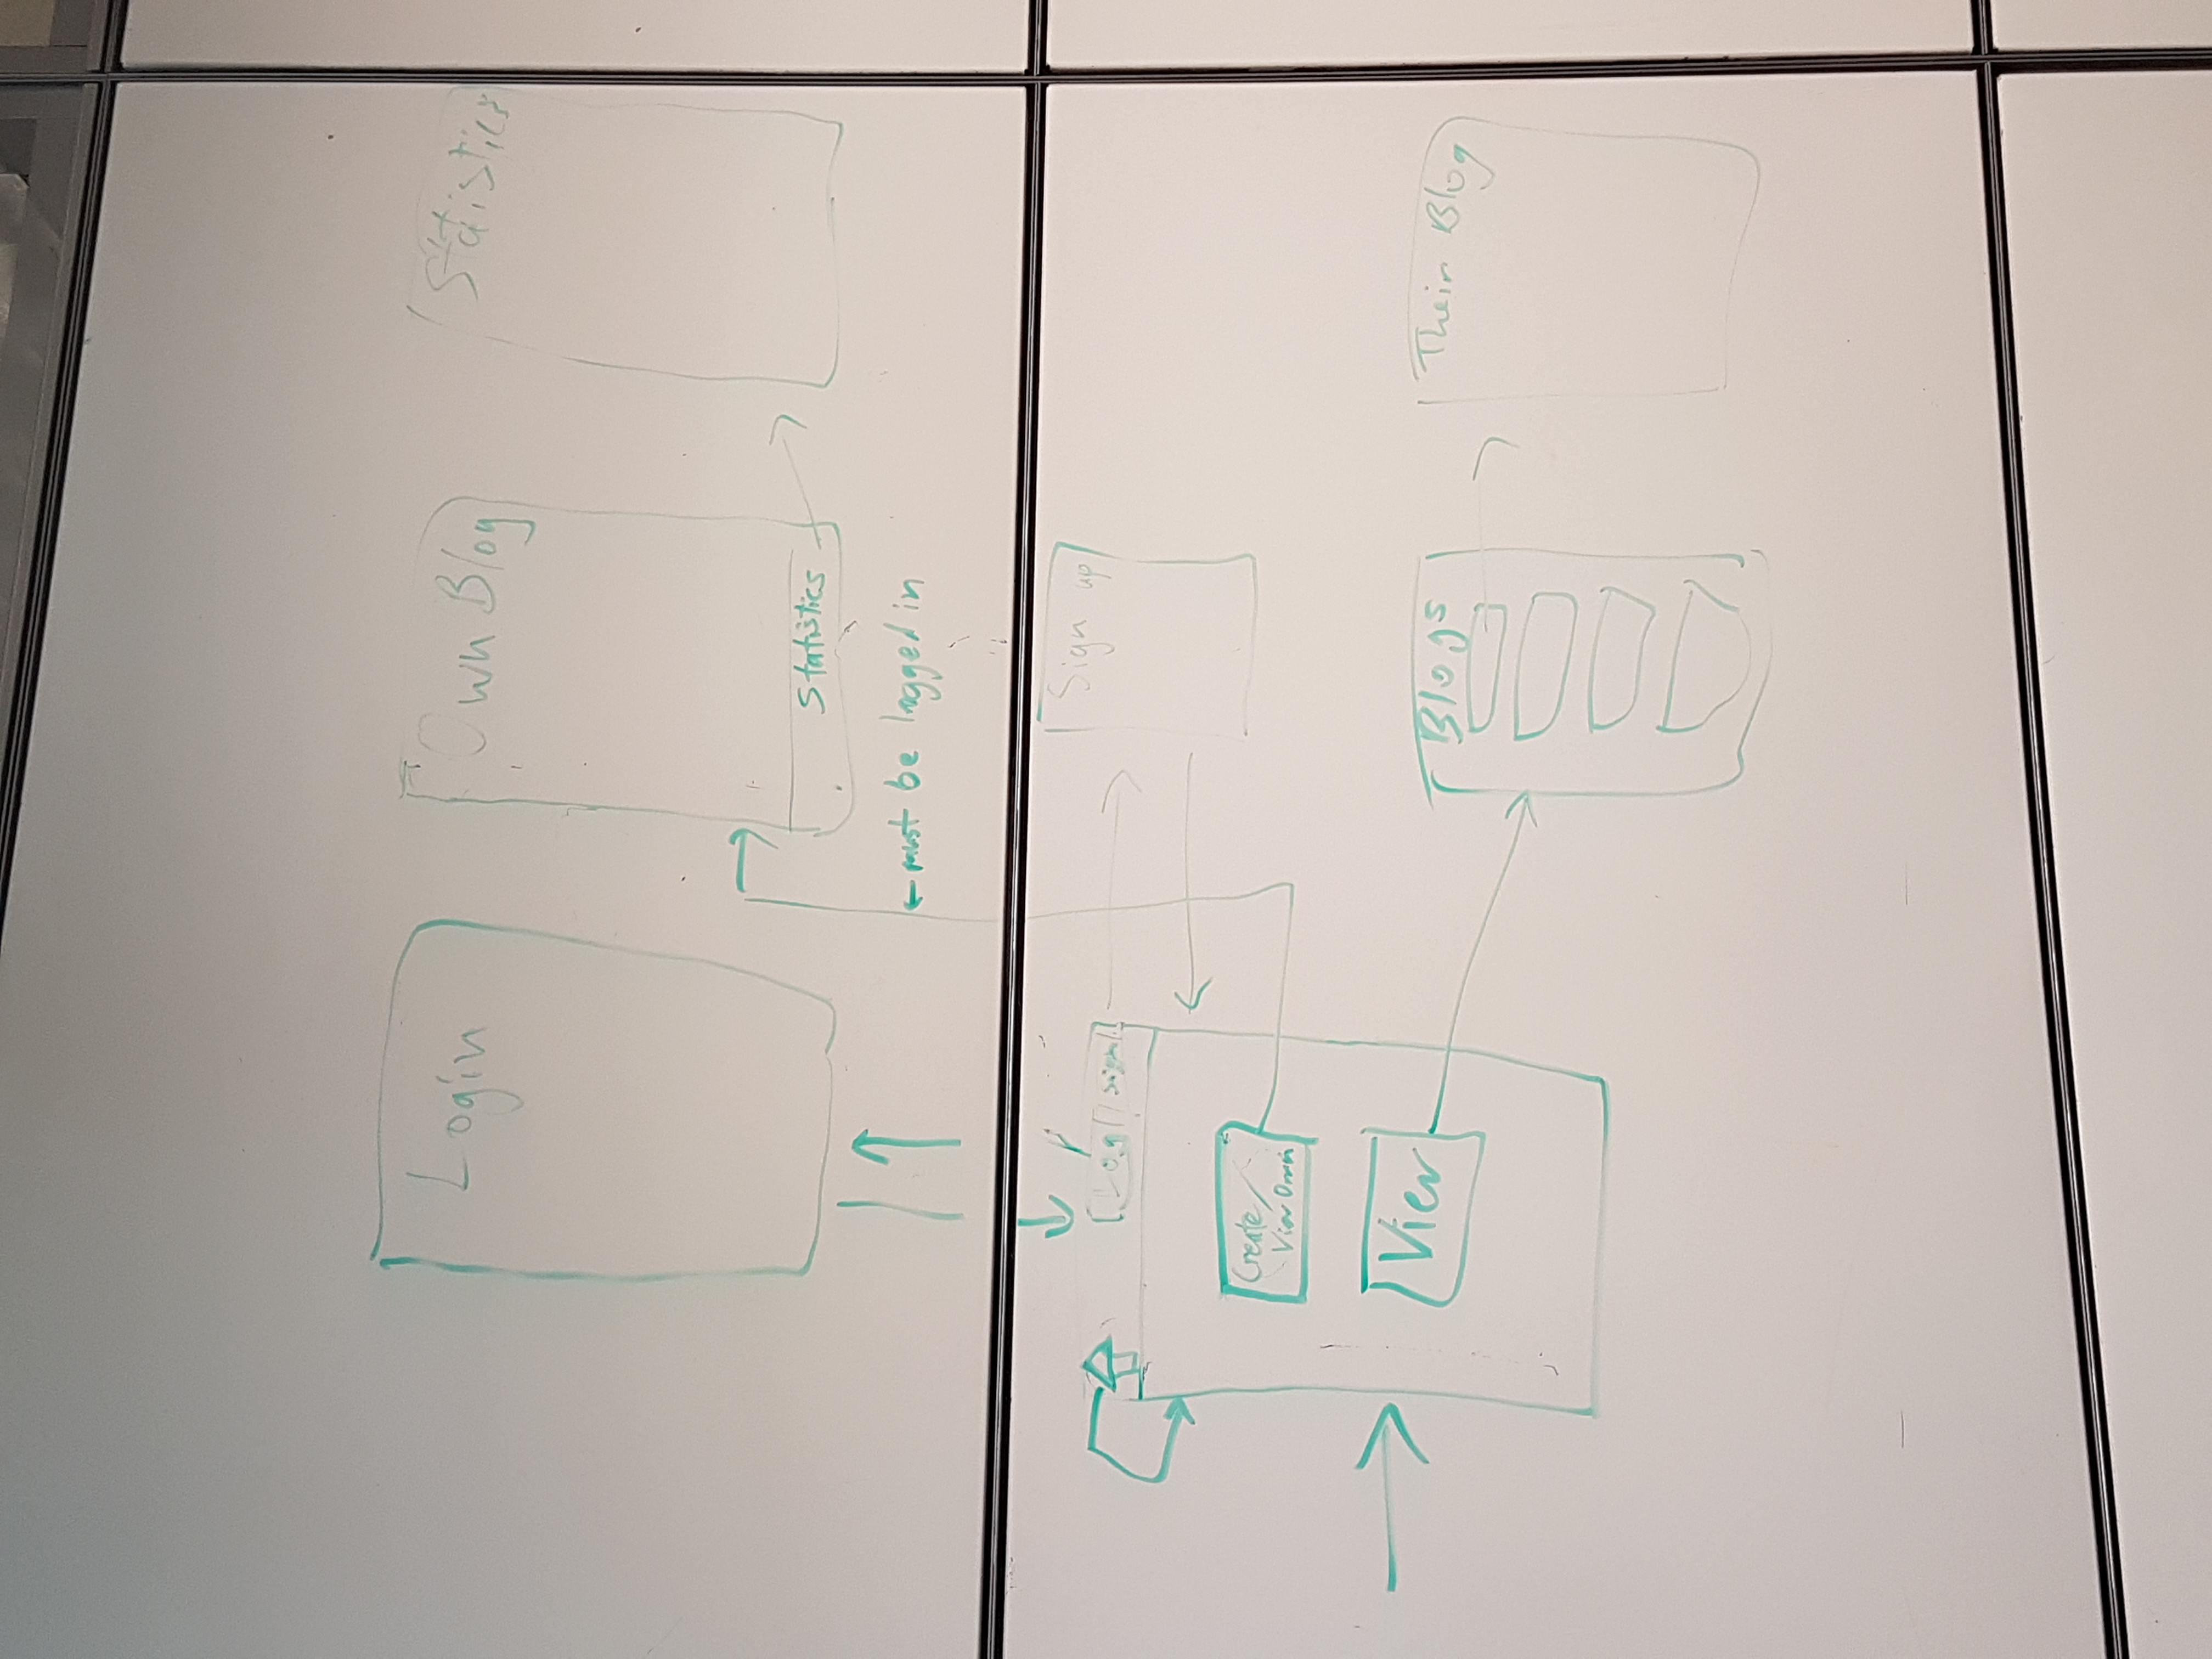 Login
Own Blog
Statistics
Statistics
must be logged in
Sign up
Log
Create/
View Own
View
Blogs
Their Blog